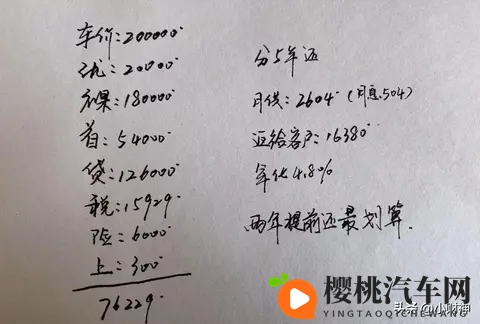 车价:200000
优:20000
裸:180000
首:54000
贷:126000
税:15929
险:6000
上:300
76229
分5年还
月供:2604 (月息504)
返给客户:16380
年化4.8%
两年提前还最划算.
樱桃汽车网
YINGTAOQICHEWANG
头条